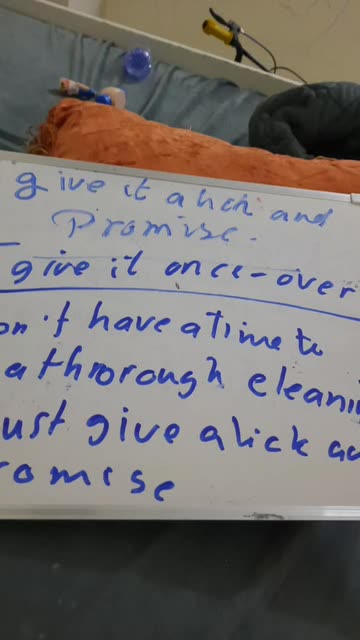 give it a lick and
Promise.
give it once-over
on't have a time to
a throrough cleani
ust give a lick a
romise